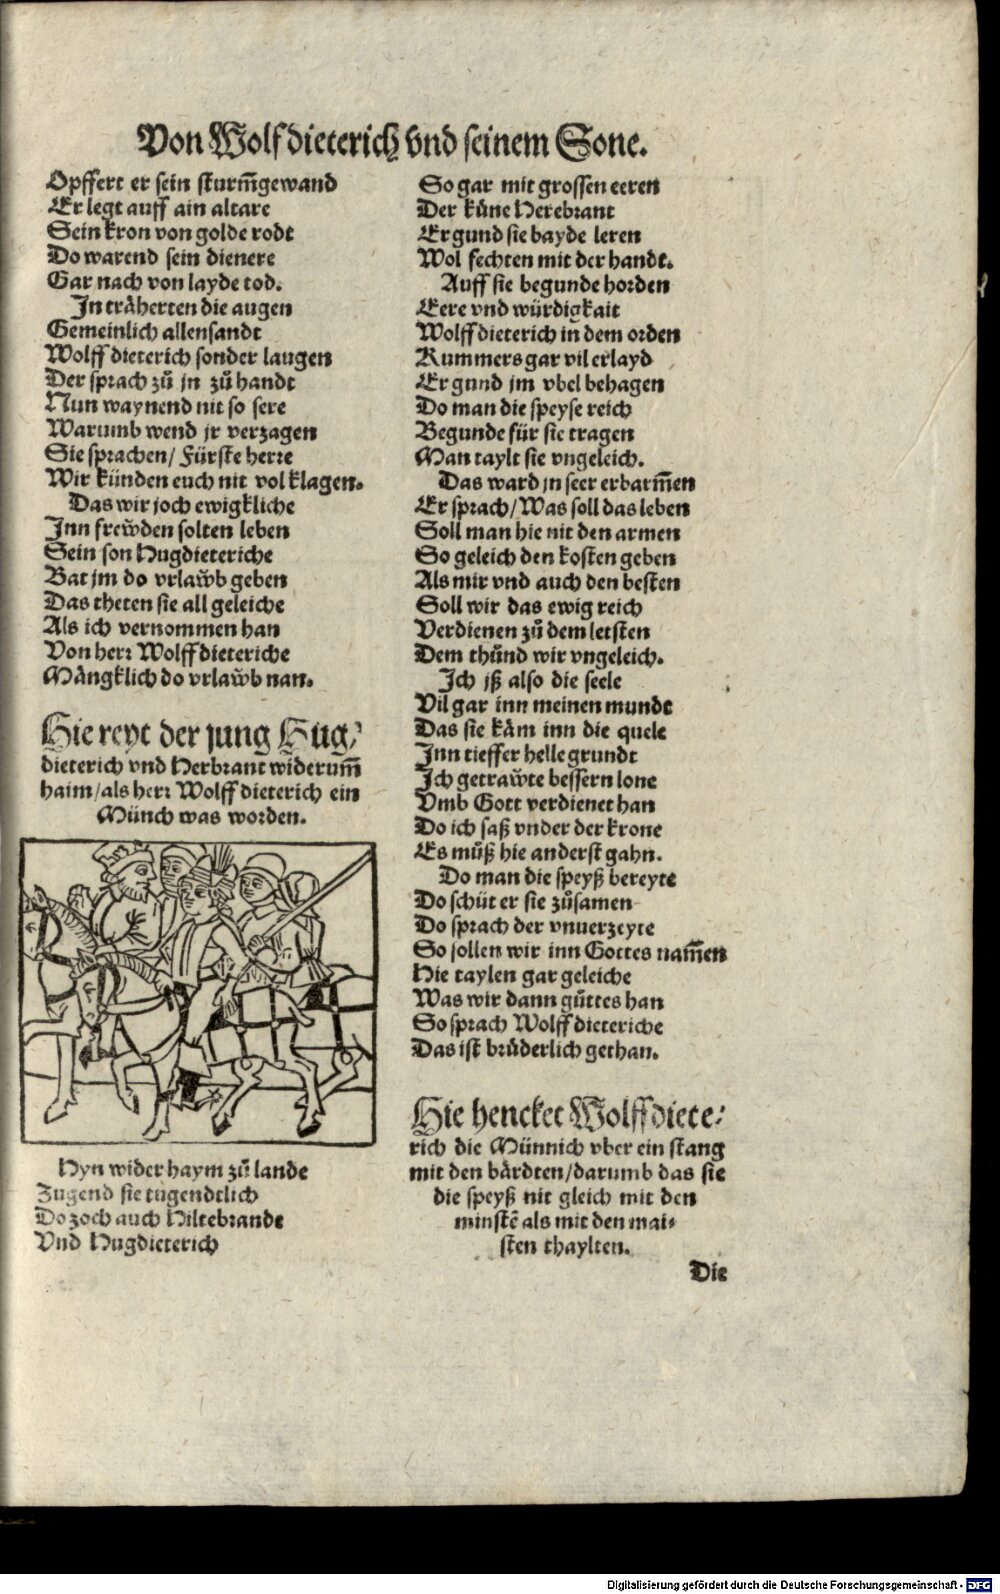 Von Wolfdieterich vnd seinem Sone.
Opffert er sein sturm̃gewand
Er legt auff ain altare
Sein kron von golde rodt
Do warend sein dienere
Gar nach von layde tod.
In träherten die augen
Gemeinlich allensandt
Wolff dieterich sonder laugen
Der sprach zů jn zů handt
Nun waynend nit so sere
Warumb wend jr verzagen
Sie sprachen/ Fürste herre
Wir künden euch nit vol klagen.
Das wir joch ewigkliche
Inn frew̃den solten leben
Sein son Hugdieteriche
Bat jm do vrlaw̃b geben
Das theten sie all geleiche
Als ich vernommen han
Von herr Wolff dieteriche
Mängklich do vrlaw̃b nan.
Hie reyt der jung Hug⸗
dieterich vnd Herbrant widerum̃
haim/als herr Wolff dieterich ein
Münch was worden.
Hyn wider haym zů lande
Zugend sie tugendtlich
Do zoch auch Hiltebrande
Vnd Hugdieterich
So gar mit grossen eeren
Der küne Herebrant
Er gund sie bayde leren
Wol fechten mit der handt.
Auff sie begunde horden
Eere vnd würdigkait
Wolff dieterich in dem orden
Kummers gar vil erlayd
Er gund jm vbel behagen
Do man die speyse reich
Begunde für sie tragen
Man taylt sie vngeleich.
Das ward jn seer erbarm̃en
Er sprach/Was soll das leben
Soll man hie nit den armen
So geleich den kosten geben
Als mir vnd auch den besten
Soll wir das ewig reich
Verdienen zů dem letsten
Dem thůnd wir vngeleich.
Ich jß also die seele
Vil gar inn meinen mundt
Das sie käm inn die quele
Inn tieffer helle grundt
Ich getraw̃te bessern lone
Vmb Gott verdienet han
Do ich saß vnder der krone
Es můß hie anderst gahn.
Do man die speyß bereyte
Do schüt er sie zůsamen
Do sprach der vnuerzeyte
So sollen wir inn Gottes nam̃en
Hie taylen gar geleiche
Was wir dann gůttes han
So sprach Wolff dieteriche
Das ist brüderlich gethan.
Hie hencket Wolffdiete⸗
rich die Münnich vber ein stang
mit den bärdten/darumb das sie
die speyß nit gleich mit den
minstē als mit den mai⸗
sten thaylten.
Die
Digitalisierung gefördert durch die Deutsche Forschungsgemeinschaft - DFG